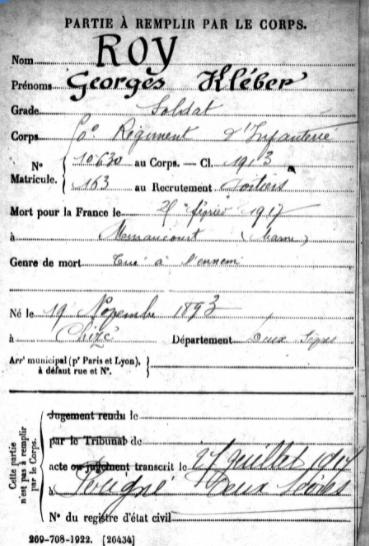 PARTIE À REMPLIR PAR LE CORPS.
Nom ROY
Prénoms Georges Kléber
Grade Soldat
Corps Régiment d'Infanterie
N° Matricule. { 10630 au Corps. — Cl. 1913
163 au Recrutement Poitiers
Mort pour la France le février 1917
à (Marne)
Genre de mort Tué à l'ennemi
Né le 19 Novembre 1893
à Chizé Département Deux Sèvres
Arr^t municipal (p^r Paris et Lyon), à défaut rue et N°. }
Cette partie n'est pas à remplir par le Corps. {
Jugement rendu le
par le Tribunal de
acte ou jugement transcrit le juillet
à Deux Sèvres
N° du registre d'état civil
269-708-1922. [26434]